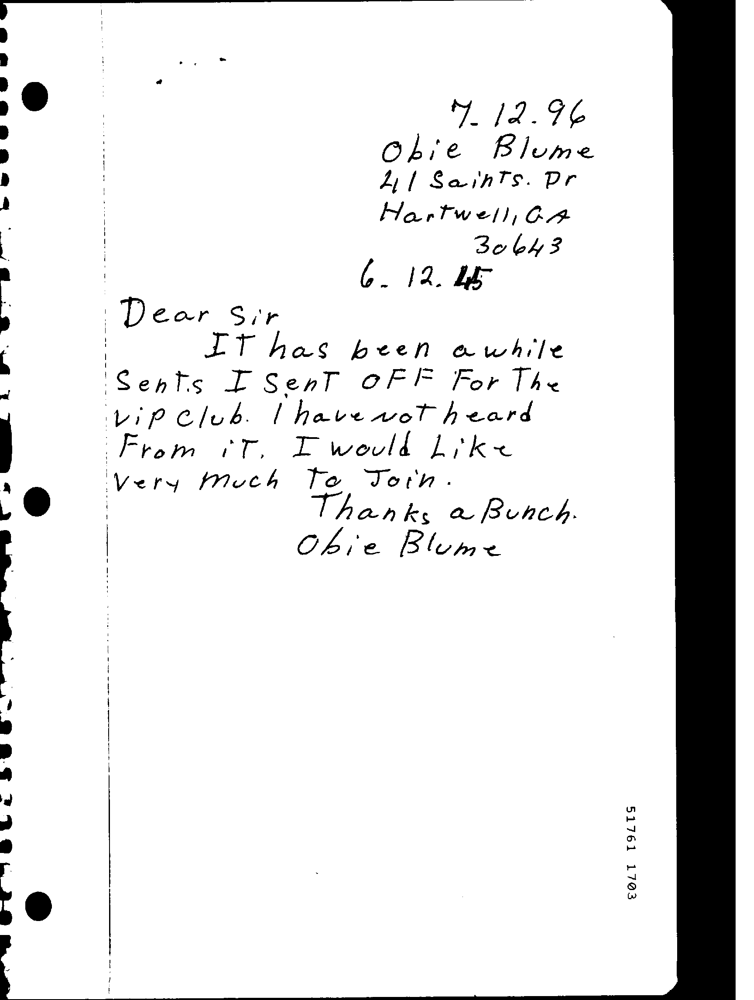 7-12-96
Obie Blume
41 Saints. Dr
Hartwell, GA
30643
6-12.45
Dear Sir
IT has been awhile
Sents I SenT OFF For The
Vip Club. I have not heard
From iT. I would Like
Very Much To Join.
Thanks a Bunch.
Obie Blume
51761 1703